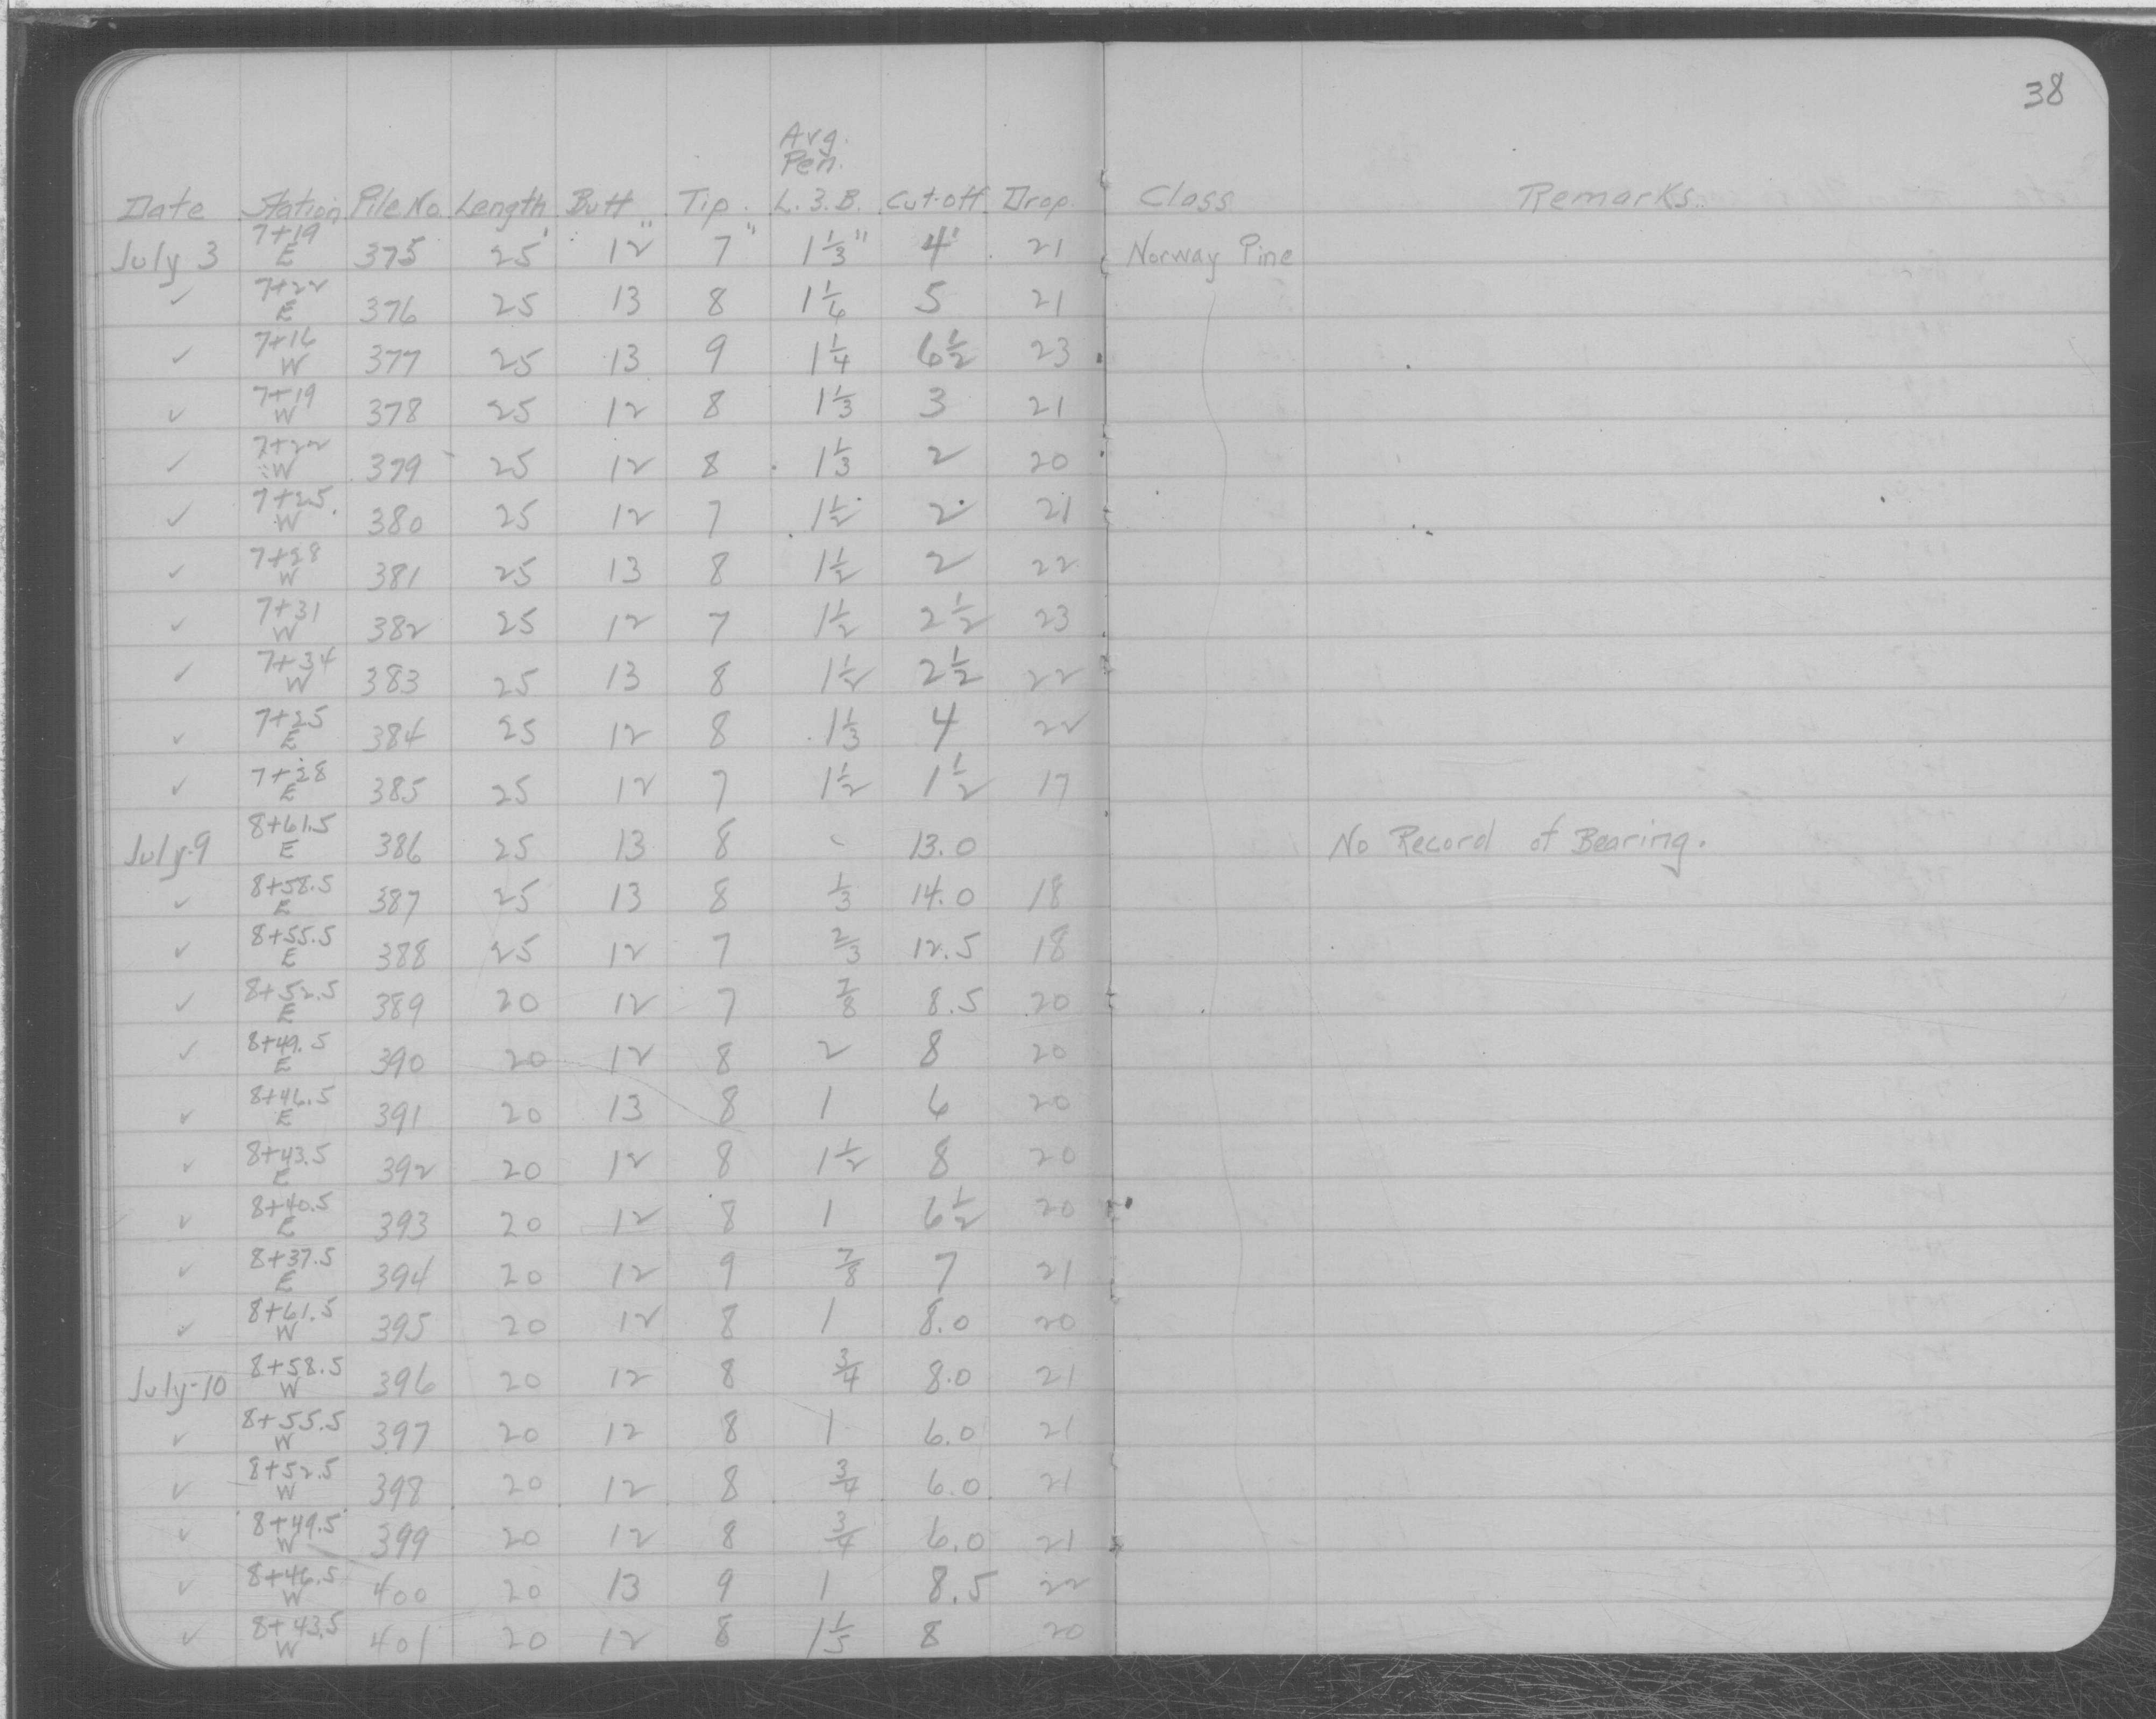 38
Avg.
Pen.
Date Station Pile No. Length Butt Tip. L.3.B. Cut-off Drop. Class Remarks.
July 3 7+19 E 375 25' 12" 7" 1 1/3" 4' 21 Norway Pine
✓ 7+22 E 376 25 13 8 1 1/6 5 21
✓ 7+16 W 377 25 13 9 1 1/4 6 1/2 23
✓ 7+19 W 378 25 12 8 1 1/3 3 21
✓ 7+22 W 379 25 12 8 1 1/3 2 20
✓ 7+25 W 380 25 12 7 1 1/2 2 21
✓ 7+28 W 381 25 13 8 1 1/2 2 22
✓ 7+31 W 382 25 12 7 1 1/2 2 1/2 23
✓ 7+34 W 383 25 13 8 1 1/2 2 1/2 22
✓ 7+25 E 384 25 12 8 1 1/3 4 22
✓ 7+28 E 385 25 12 7 1 1/2 1 1/2 17
July-9 8+61.5 E 386 25 13 8 - 13.0 No Record of Bearing.
✓ 8+58.5 E 387 25 13 8 1/3 14.0 18
✓ 8+55.5 E 388 25 12 7 2/3 12.5 18
✓ 8+52.5 E 389 20 12 7 7/8 8.5 20
✓ 8+49.5 E 390 20 12 8 2 8 20
✓ 8+46.5 E 391 20 13 8 1 6 20
✓ 8+43.5 E 392 20 12 8 1 1/2 8 20
✓ 8+40.5 E 393 20 12 8 1 6 1/2 20
✓ 8+37.5 E 394 20 12 9 7/8 7 21
✓ 8+61.5 W 395 20 12 8 1 8.0 20
July-10 8+58.5 W 396 20 12 8 3/4 8.0 21
✓ 8+55.5 W 397 20 12 8 1 6.0 21
✓ 8+52.5 W 398 20 12 8 3/4 6.0 21
✓ 8+49.5 W 399 20 12 8 3/4 6.0 21
✓ 8+46.5 W 400 20 13 9 1 8.5 22
✓ 8+43.5 W 401 20 12 8 1 1/5 8 20